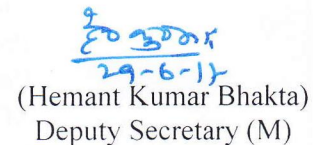 (Hemant Kumar Bhakta)
Deputy Secretary (M)